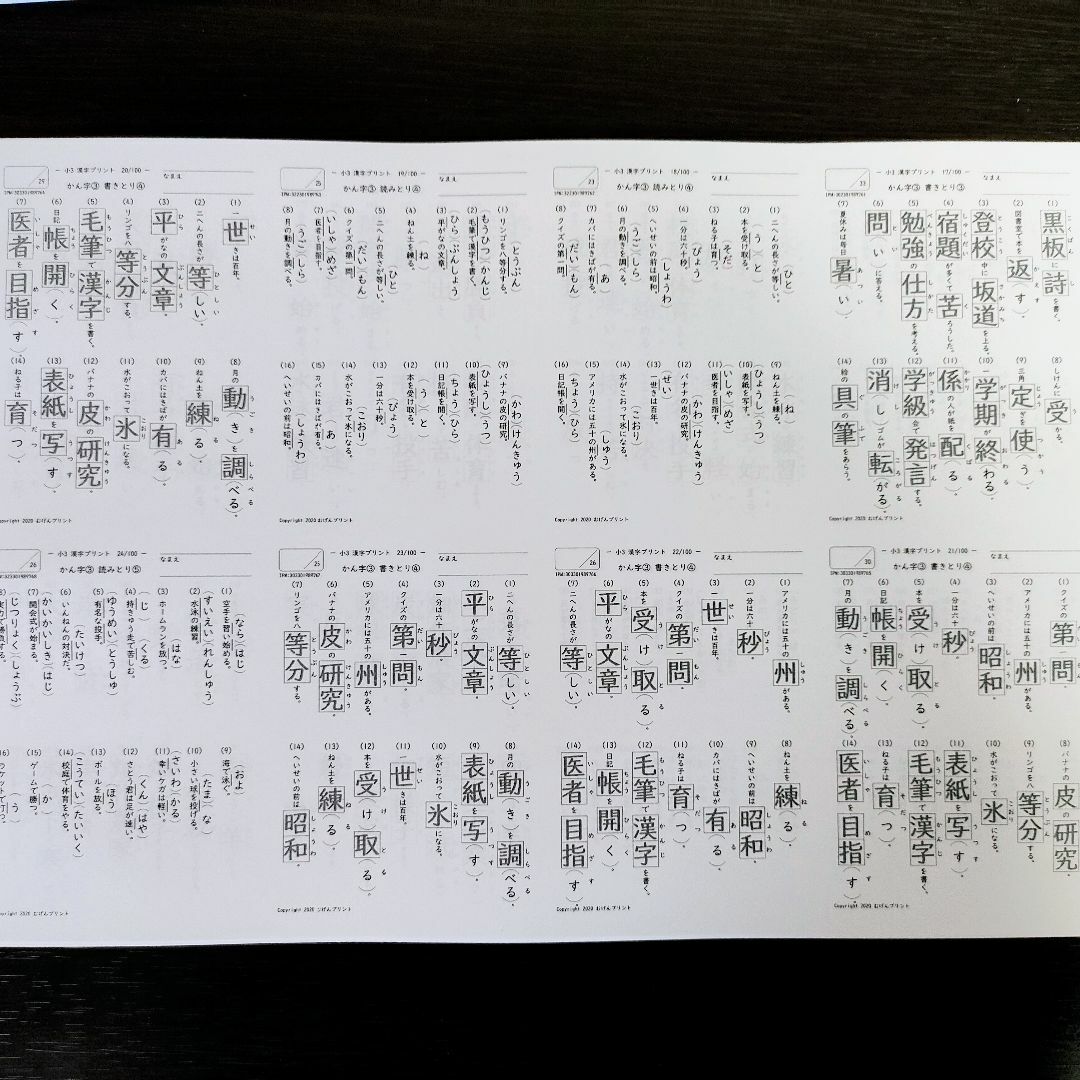 - 小3 漢字プリント 17/100 -
かん字③ 書きとり③
なまえ
33
(1) 黒板に詩を書く。
(2) 図書室で本を返(す)。
(3) 登校中に坂道を上る。
(4) 宿題が多くて苦ろうした。
(5) 勉強の仕方を考える。
(6) 問(い)に答える。
(7) 夏休みは毎日暑(い)
(8) しけんに受かる。
(9) 三角定ぎを使う。
(10) 一学期が終わる。
(11) 係の人が紙を配(る)。
(12) 学級会で発言する。
(13) 消(し)ゴムが転がる。
(14) 絵の具の筆をあらう。
- 小3 漢字プリント 18/100 -
かん字③ 読みとり④
なまえ
23
(1) 二へんの長さが等しい。(ひと)
(2) 本を受け取る。(う)(と)
(3) ねる子は育つ。(そだ)
(4) 一分は六十秒。(びょう)
(5) へいせいの前は昭和。(しょうわ)
(6) 月の動きを調べる。(うご)(しら)
(7) カバにはきばが有る。(あ)
(8) クイズの第一問。(だい)(もん)
(9) ねん土を練る。(ね)
(10) 表紙を写す。(ひょうし)(うつ)
(11) 医者を目指す。(いしゃ)(めざ)
(12) バナナの皮の研究。(かわ)(けんきゅう)
(13) 一世きは百年。(せい)
(14) 水がこおって氷になる。(こおり)
(15) アメリカには五十の州がある。(しゅう)
(16) 日記帳を開く。(ちょう)(ひら)
Copyright 2020 むげんプリント
- 小3 漢字プリント 19/100 -
かん字③ 読みとり④
なまえ
25
(1) リンゴを八等分する。(とうぶん)
(2) 毛筆で漢字を書く。(もうひつ)(かんじ)
(3) 平がなの文章。(ひら)(ぶんしょう)
(4) ねん土を練る。(ね)
(5) 二へんの長さが等しい。(ひと)
(6) クイズの第一問。(だい)(もん)
(7) 医者を目指す。(いしゃ)(めざ)
(8) 月の動きを調べる。(うご)(しら)
(9) バナナの皮の研究。(かわ)(けんきゅう)
(10) 表紙を写す。(ひょうし)(うつ)
(11) 日記帳を開く。(ちょう)(ひら)
(12) 本を受け取る。(う)(と)
(13) 一分は六十秒。(びょう)
(14) 水がこおって氷になる。(こおり)
(15) カバにはきばが有る。(あ)
(16) へいせいの前は昭和。(しょうわ)
Copyright 2020 むげんプリント
- 小3 漢字プリント 20/100 -
かん字③ 書きとり④
なまえ
29
(1) 一世きは百年。
(2) 二へんの長さが等(しい)。
(3) 平がなの文章
(4) リンゴを八等分する。
(5) 毛筆で漢字を書く。
(6) 日記帳を開く。
(7) 医者を目指(す)
(8) 月の動(き)を調(べる)。
(9) ねん土を練(る)。
(10) カバにはきばが有(る)
(11) 水がこおって氷になる。
(12) バナナの皮の研究。
(13) 表紙を写(す)。
(14) ねる子は育(つ)。
Copyright 2020 むげんプリント
- 小3 漢字プリント 21/100 -
かん字③ 書きとり④
なまえ
30
第一問
(2) アメリカには五十の州がある。
(3) へいせいの前は昭和。
(4) 一分は六十秒。
(5) 本を受(け)取(る)。
(6) 日記帳を開(く)。
(7) 月の動(き)を調(べる)。
(8) バナナの皮の研究。
(9) リンゴを八等分する。
(10) 水がこおって氷になる。
(11) 表紙を写(す)。
(12) 毛筆で漢字を書く。
(13) ねる子は育(つ)。
(14) 医者を目指(す)。
Copyright 2020 むげんプリント
- 小3 漢字プリント 22/100 -
かん字③ 書きとり④
なまえ
26
(1) アメリカには五十の州がある。
(2) 一分は六十秒。
(3) 一世きは百年。
(4) クイズの第一問。
(5) 本を受(け)取(る)。
(6) 平がなの文章。
(7) 二へんの長さが等(しい)。
(8) ねん土を練(る)。
(9) へいせいの前は昭和。
(10) カバにはきばが有(る)。
(11) ねる子は育(つ)。
(12) 毛筆で漢字を書く。
(13) 日記帳を開(く)。
(14) 医者を目指(す)。
Copyright 2020 むげんプリント
- 小3 漢字プリント 23/100 -
かん字③ 書きとり④
なまえ
25
(1) 二へんの長さが等(しい)。
(2) 平がなの文章。
(3) 一分は六十秒。
(4) クイズの第一問。
(5) アメリカには五十の州がある。
(6) バナナの皮の研究。
(7) リンゴを八等分する。
(8) 月の動(き)を調(べる)。
(9) 表紙を写(す)。
(10) 水がこおって氷になる。
(11) 一世きは百年。
(12) 本を受(け)取(る)。
(13) ねん土を練(る)。
(14) へいせいの前は昭和。
Copyright 2020 むげんプリント
- 小3 漢字プリント 24/100 -
かん字③ 読みとり⑤
なまえ
26
(1) 空手を習い始める。(なら)(はじ)
(2) 水泳の練習。(すいえい)(れんしゅう)
(3) ホームランを放つ。(はな)
(4) 持きゅう走で苦しむ。(じ)(くる)
(5) 有名な投手。(ゆうめい)(とうしゅ)
(6) いんねんの対決だ。(たいけつ)
(7) 開会式が始まる。(かいかいしき)(はじ)
(じつりょく)(しょうぶ)
(9) 海で泳ぐ。(およ)
(10) 小さい球を投げる。(たま)(な)
(11) 幸いケガは軽い。(さいわ)(かる)
(12) さとう君は足が速い。(くん)(はや)
(13) ボールを放る。(ほう)
(14) 校庭で体育をやる。(こうてい)(たいいく)
(15) ゲームで勝つ。(か)
ラケットで打つ。(う)
むげんプリント